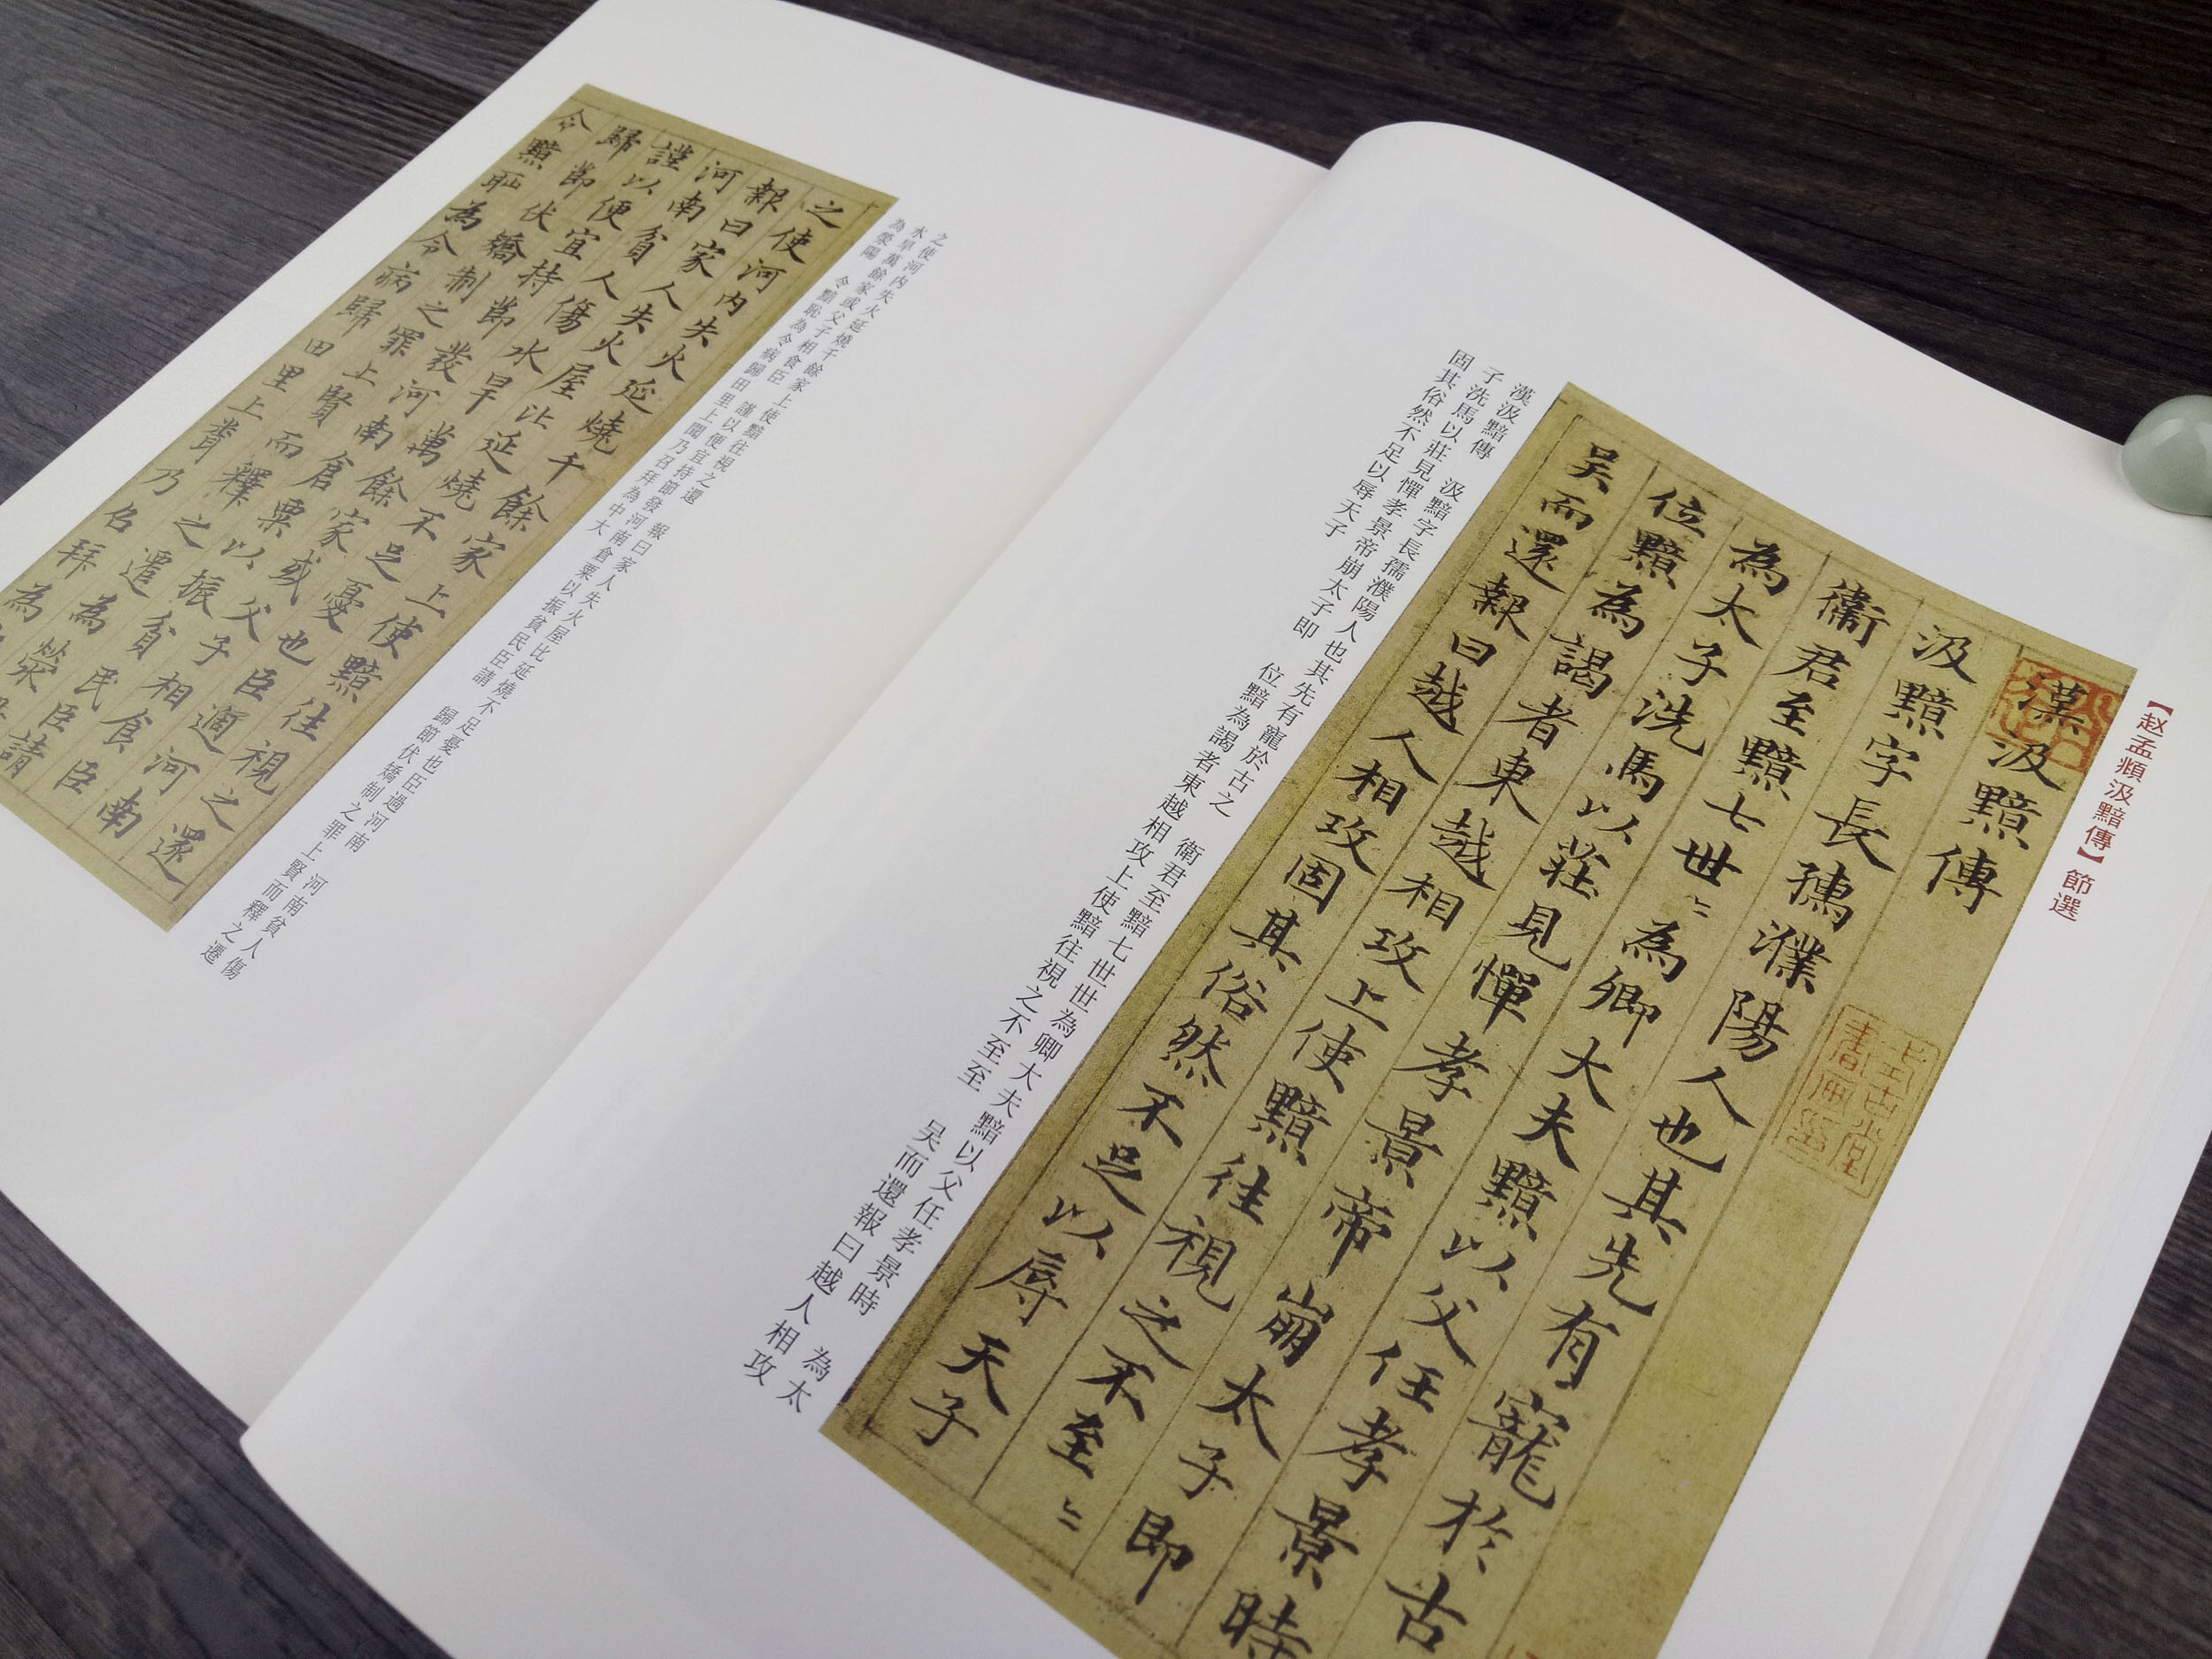 【赵孟頫汲黯傳】節選
漢汲黯傳
汲黯字長孺濮陽人也其先有寵於古
衛君至黯七世〻為卿大夫黯以父任孝景時
為太子洗馬以莊見憚孝景帝崩太子即
位黯為謁者東越相攻上使黯往視之不至〻
吳而還報曰越人相攻固其俗然不足以辱天子
漢汲黯傳　汲黯字長孺濮陽人也其先有寵於古之　衛君至黯七世世為卿大夫黯以父任孝景時　為太
子洗馬以莊見憚孝景帝崩太子即　位黯為謁者東越相攻上使黯往視之不至至　吳而還報曰越人相攻
固其俗然不足以辱天子
之使河内失火延燒千餘家上使黯往視之還　報曰家人失火屋比延燒不足憂也臣過河南　河南貧人傷
水旱萬餘家或父子相食臣　謹以便宜持節發河南倉粟以振貧民臣請　歸節伏矯制之罪上賢而釋之遷
為滎陽　令黯恥為令病歸田里上聞乃召拜為中大
之使河内失火延燒千餘家上使黯往視之還
報曰家人失火屋比延燒不足憂也臣過河南
河南貧人傷水旱萬餘家或父子相食臣
謹以便宜持節發河南倉粟以振貧民臣請
歸節伏矯制之罪上賢而釋之遷為滎
令黯恥為令病歸田里上聞乃召拜為